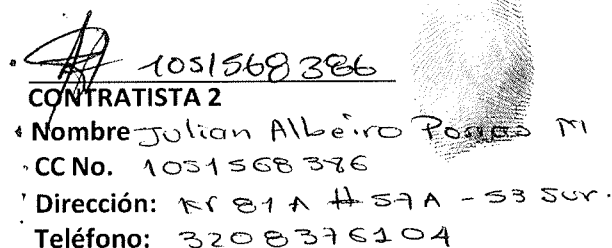 1051568386
CONTRATISTA 2
Nombre Julian Albeiro Porras M
CC No. 1051568386
Dirección: Kr 81 A # 57A - 53 Sur.
Teléfono: 3208376104